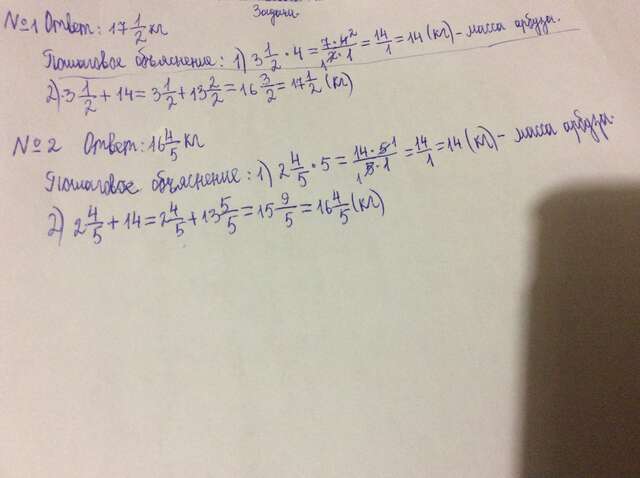 Задачи.
№1 Ответ: 17 1/2 кг
Пошаговое объяснение: 1) 3 1/2 · 4 = 7·4²/₁2·1 = 14/1 = 14 (кг) - масса арбуза.
2) 3 1/2 + 14 = 3 1/2 + 13 2/2 = 16 3/2 = 17 1/2 (кг)
№2 Ответ: 16 4/5 кг
Пошаговое объяснение: 1) 2 4/5 · 5 = 14·5¹/₁5·1 = 14/1 = 14 (кг) - масса арбуза.
2) 2 4/5 + 14 = 2 4/5 + 13 5/5 = 15 9/5 = 16 4/5 (кг)